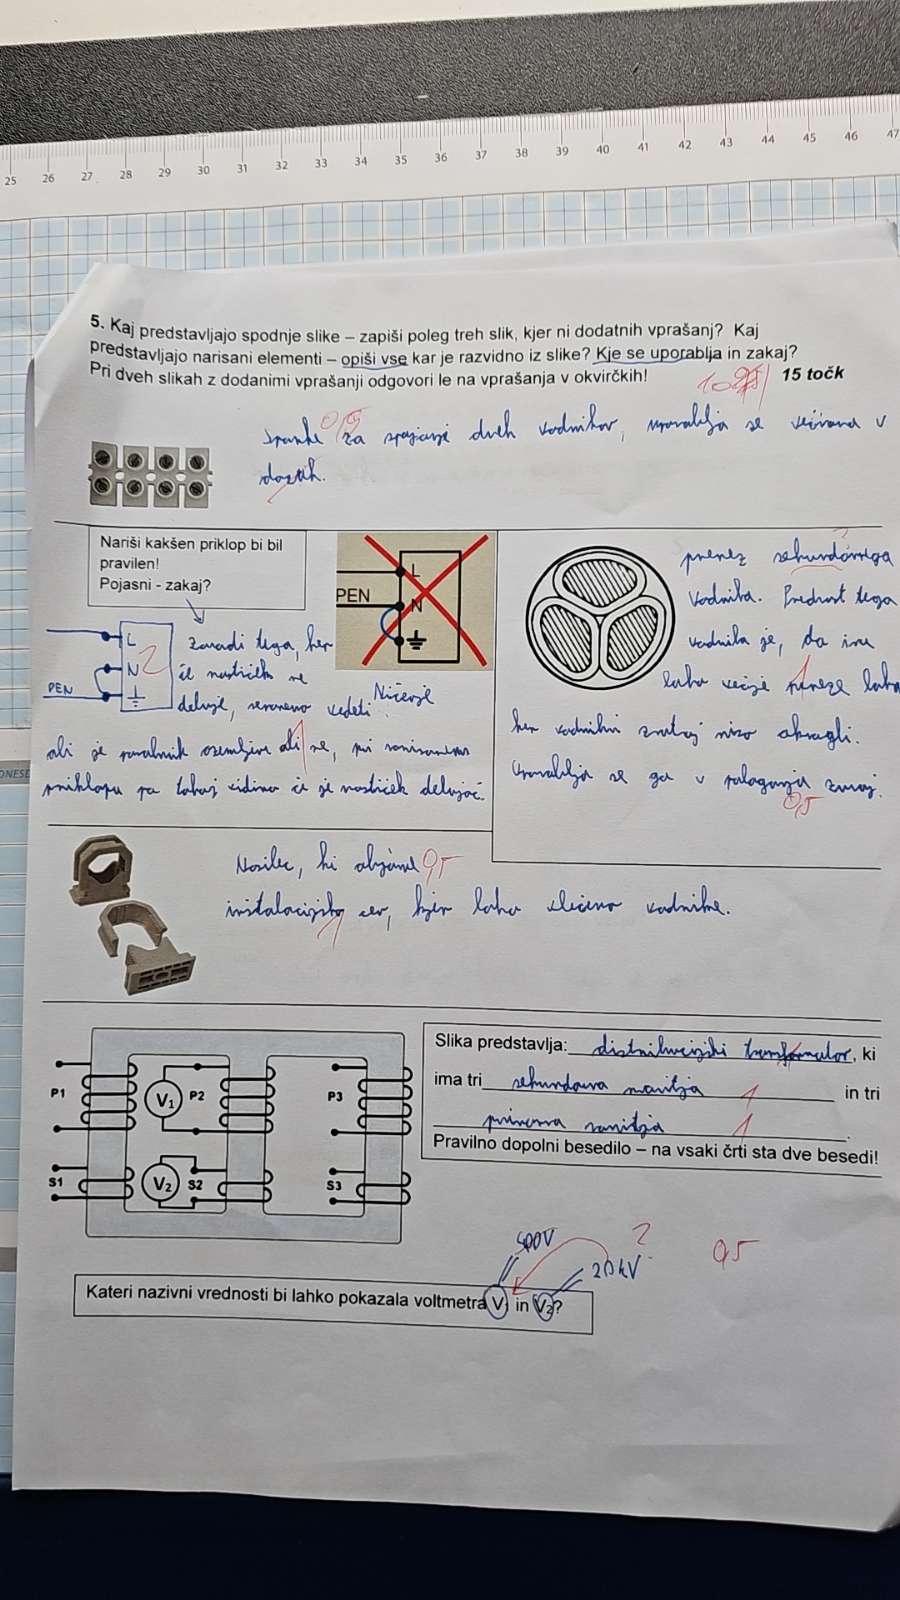 25 26 27 28 29 30 31 32 33 34 35 36 37 38 39 40 41 42 43 44 45 46 47
5. Kaj predstavljajo spodnje slike – zapiši poleg treh slik, kjer ni dodatnih vprašanj? Kaj
predstavljajo narisani elementi – opiši vse kar je razvidno iz slike? Kje se uporablja in zakaj?
Pri dveh slikah z dodanimi vprašanji odgovori le na vprašanja v okvirčkih! 15 točk
0,5
za spajanje dveh vodnikov, uporablja se v
dozah.
Nariši kakšen priklop bi bil
pravilen!
Pojasni - zakaj?
L
PEN
N
L
N
PEN
2
Zaradi tega, ker
če ne
deluje, vedeti
Ničenje
ali je ozemljen ali ne, pri
priklopu pa takoj vidimo če je deluje.
1
prerez
vodnika. Prednost tega
vodnika je, da ima
lahko večje prereze lahko
ker vodniki znotraj niso okrogli.
Uporablja se ga v
0,5
1
Nosilec, ki objame 0,5
instalacijsko cev, kjer lahko vlečemo vodnike.
1
P1
V1
P2
P3
S1
V2
S2
S3
Slika predstavlja: distribucijski transformator, ki
ima tri sekundarna navitja 1 in tri
primarna navitja 1.
Pravilno dopolni besedilo – na vsaki črti sta dve besedi!
400V
20kV
?
0,5
Kateri nazivni vrednosti bi lahko pokazala voltmetra V1 in V2?